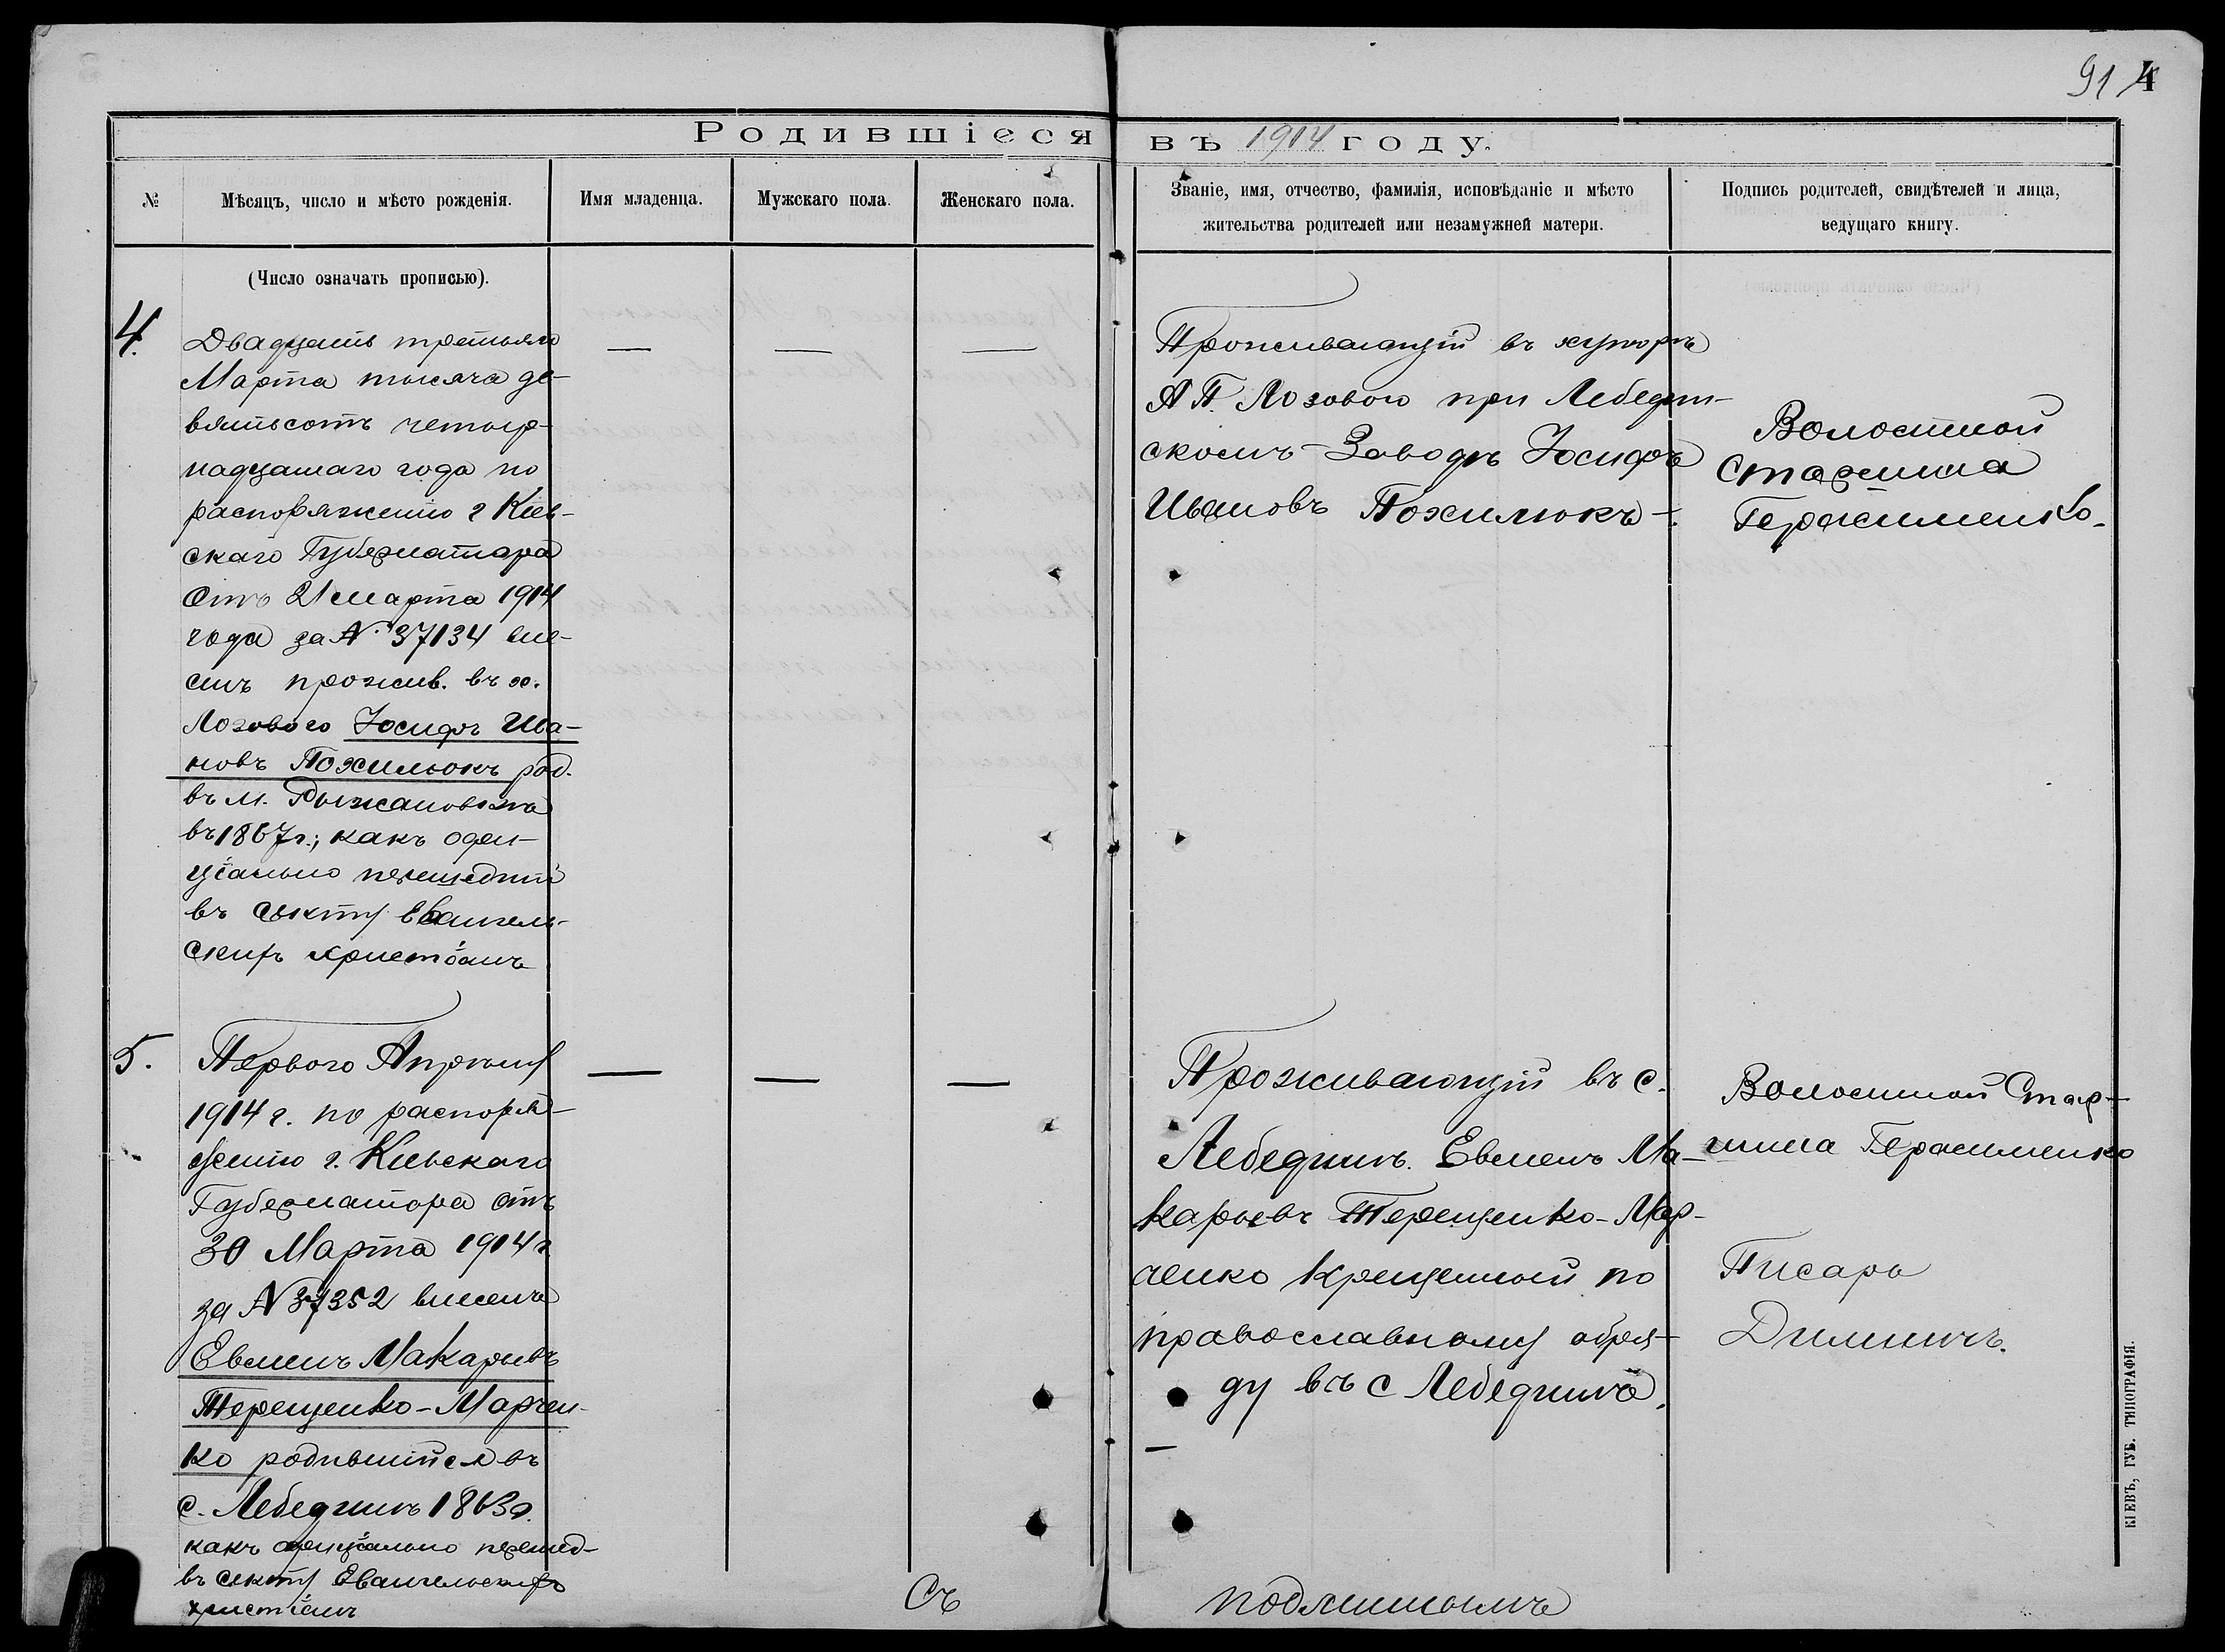 91 4
Родившіеся въ 1914 году.
№
Мѣсяцъ, число и мѣсто рожденія.
Имя младенца.
Мужскаго пола.
Женскаго пола.
Званіе, имя, отчество, фамилія, исповѣданіе и мѣсто
жительства родителей или незамужней матери.
Подпись родителей, свидѣтелей и лица,
ведущаго книгу.
(Число означать прописью).
4.
Двадцать третьяго
Марта тысяча де-
вятьсотъ четыр-
надцатаго года по
распоряженію г Кіев-
скаго Губернатора
отъ 21 марта 1914
года за № 37134 вне-
сенъ прожив. въ х.
Лозового Іосифъ Ива-
новъ Похилюкъ род.
въ м. Рыжановкѣ
въ 1867 г.; какъ офи-
ціально перешедшій
въ секту Евангель-
скихъ христіанъ
— — —
Проживающій въ хуторѣ
А П. Лозового при Лебедин-
скомъ Заводѣ Іосифъ
Ивановъ Похилюкъ -.
Волостной
Старшина
Герасименко.
5.
Первого Апрѣля
1914 г. по распоря-
женію г. Кіевскаго
Губернатора отъ
30 Марта 1914 г
за № 37352 внесенъ
Евменъ Макарьевъ
Терещенко-Марчен-
ко родившійся въ
с. Лебединѣ 1863 г.
какъ офиціально перешед-
въ секту Евангельскихъ
христіанъ
— — —
Проживающій въ с.
Лебединѣ. Евменъ Ма-
карьевъ Терещенко-Мар-
ченко крещенный по
православному обря-
ду въ с Лебединѣ.
—
Волостной Стар-
шина Герасименко
Писарь
Съ подлиннымъ
КІЕВЪ, ГУБ. ТИПОГРАФІЯ.